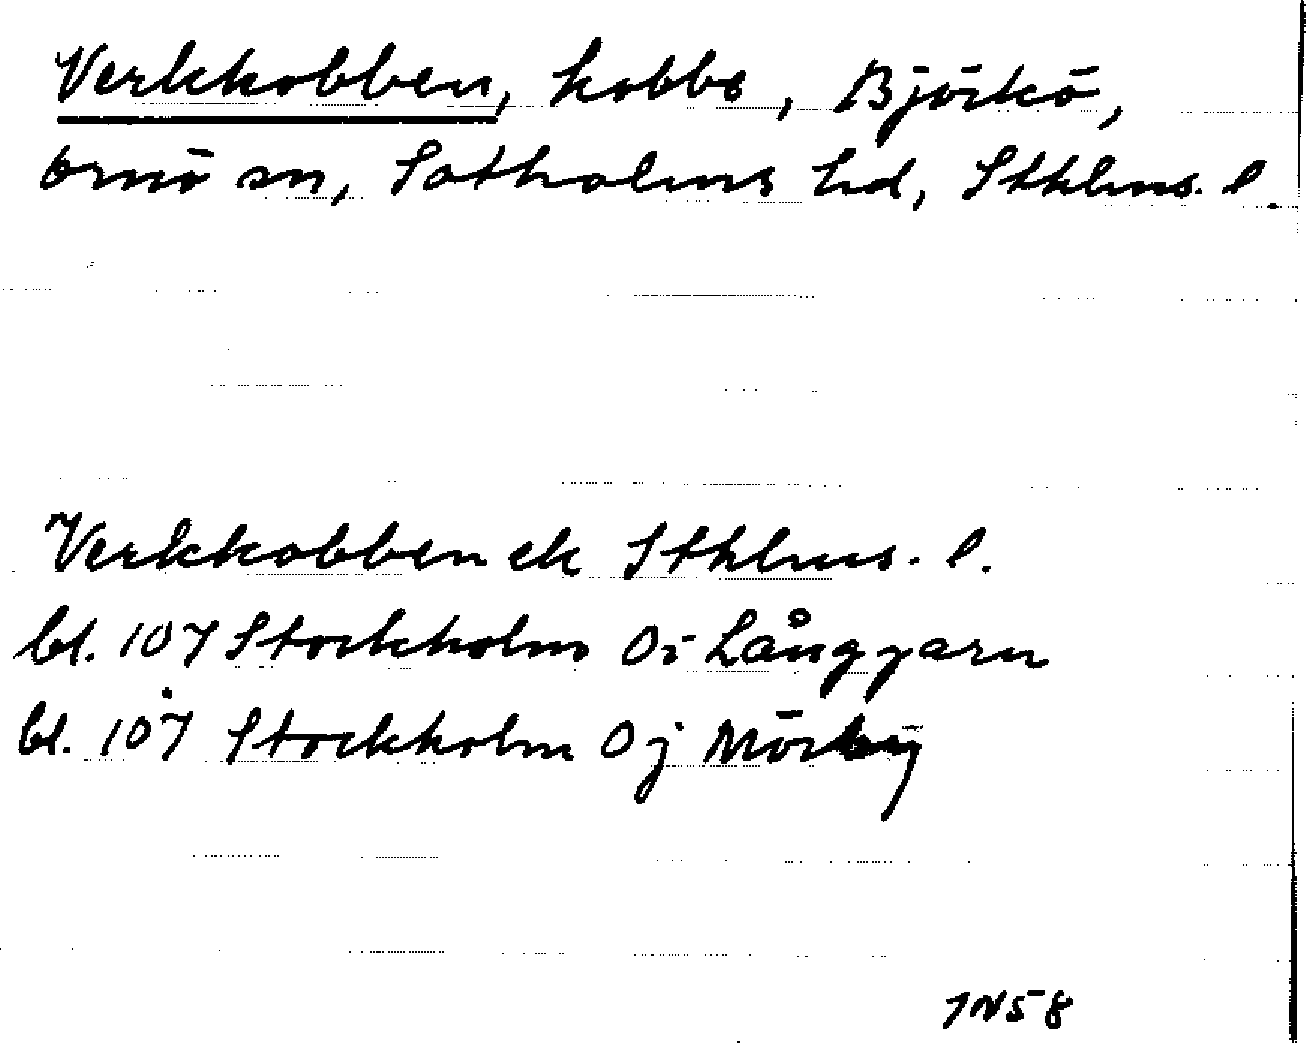 Verkkobben, kobbe, Björkö,
Ornö sn, Sotholms hd, Sthlms. l.
Verkkobben ek Sthlms. l.
bl. 107 Stockholm Oi Långgarn
bl. 107 Stockholm Oj Mörby
7N58